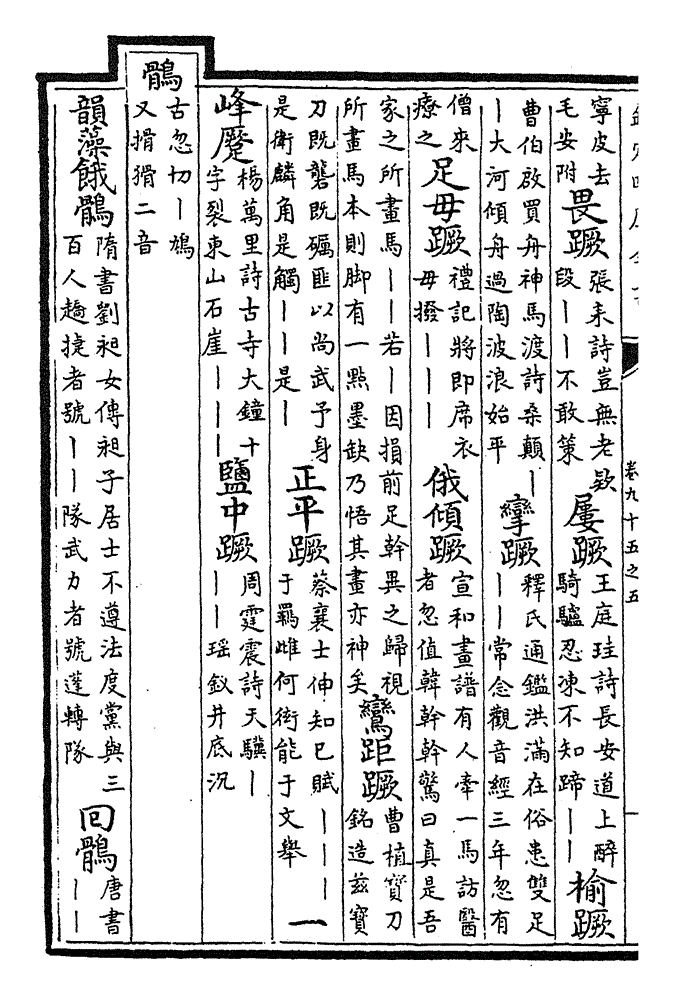 卷九十五之五
寧皮去毛安附 畏蹶 張耒詩豈無老欵段｜｜不敢策 屢蹶 王庭珪詩長安道上醉騎驢忍凍不知蹄｜｜ 榆蹶
曹伯啟買舟神馬渡詩桑顛｜｜大河傾舟過陶波浪始平 孿蹶 釋氏通鑑洪滿在俗患雙足｜｜常念觀音經三年忽有
僧來療之 足毋蹶 禮記將即席衣毋撥｜｜｜ 俄傾蹶 宣和畫譜有人牽一馬訪醫者忽值韓幹幹驚曰真是吾
家之所畫馬｜｜若｜因損前足幹異之歸視所畫馬本則脚有一點墨缺乃悟其畫亦神矣 鸞距蹶 曹植寶刀銘造兹寶
刀既礱既礪匪以尚武予身是衛麟角是觸｜｜是｜ 正平蹶 蔡襄士伸知已賦｜｜｜于羈雌何衒能于文舉 一
峰蹷 楊萬里詩古寺大鐘十字裂東山石崖｜｜｜ 鹽中蹶 周霆震詩天驥｜｜｜瑶釵井底沉
鶻 古忽切｜鳩又搰猾二音
韻藻餓鶻 隋書劉昶女傳昶子居士不遵法度黨與三百人趫捷者號｜｜隊武力者號蓬轉隊 回鶻 唐書｜｜